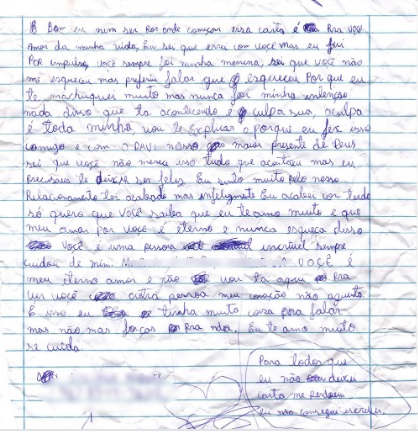 Bom eu nem sei Por onde começar essa carta é Pra você
Amor da minha vida, Eu sei que errei com você mas eu fui
Por impulso, você sempre foi minha menina, sei que você não
me esqueceu mas preferiu falar que esqueceu. Por que eu
te machuquei muito mas nunca foi minha intenção
nada disso que ta acontecendo é culpa sua, aculpa
é toda minha vou te explicar o porque eu fiz isso
comigo e com o DAVI nosso maior presente de Deus
sei que você não merecia isso tudo que aconteceu mas eu
precisava te deixar ser feliz. Eu sinto muito pelo nosso
Relacionamento ter acabado mas infelizmente Eu acabei com tudo
só quero que você saiba que eu te amo muito e que
meu amor por você é eterno e nunca esqueça disso
você é uma pessoa incrível sempre
cuidou de mim. VOCÊ É
meu eterno amor e não vou ta aqui Pra
ver você outra pessoa meu coração não aguenta.
E isso eu tinha muita coisa para falar
mas não mas forças Pra nda. Eu te amo muito
se cuida
Para todos que
eu não deixei
carta me perdoem
eu não consegui escrever.